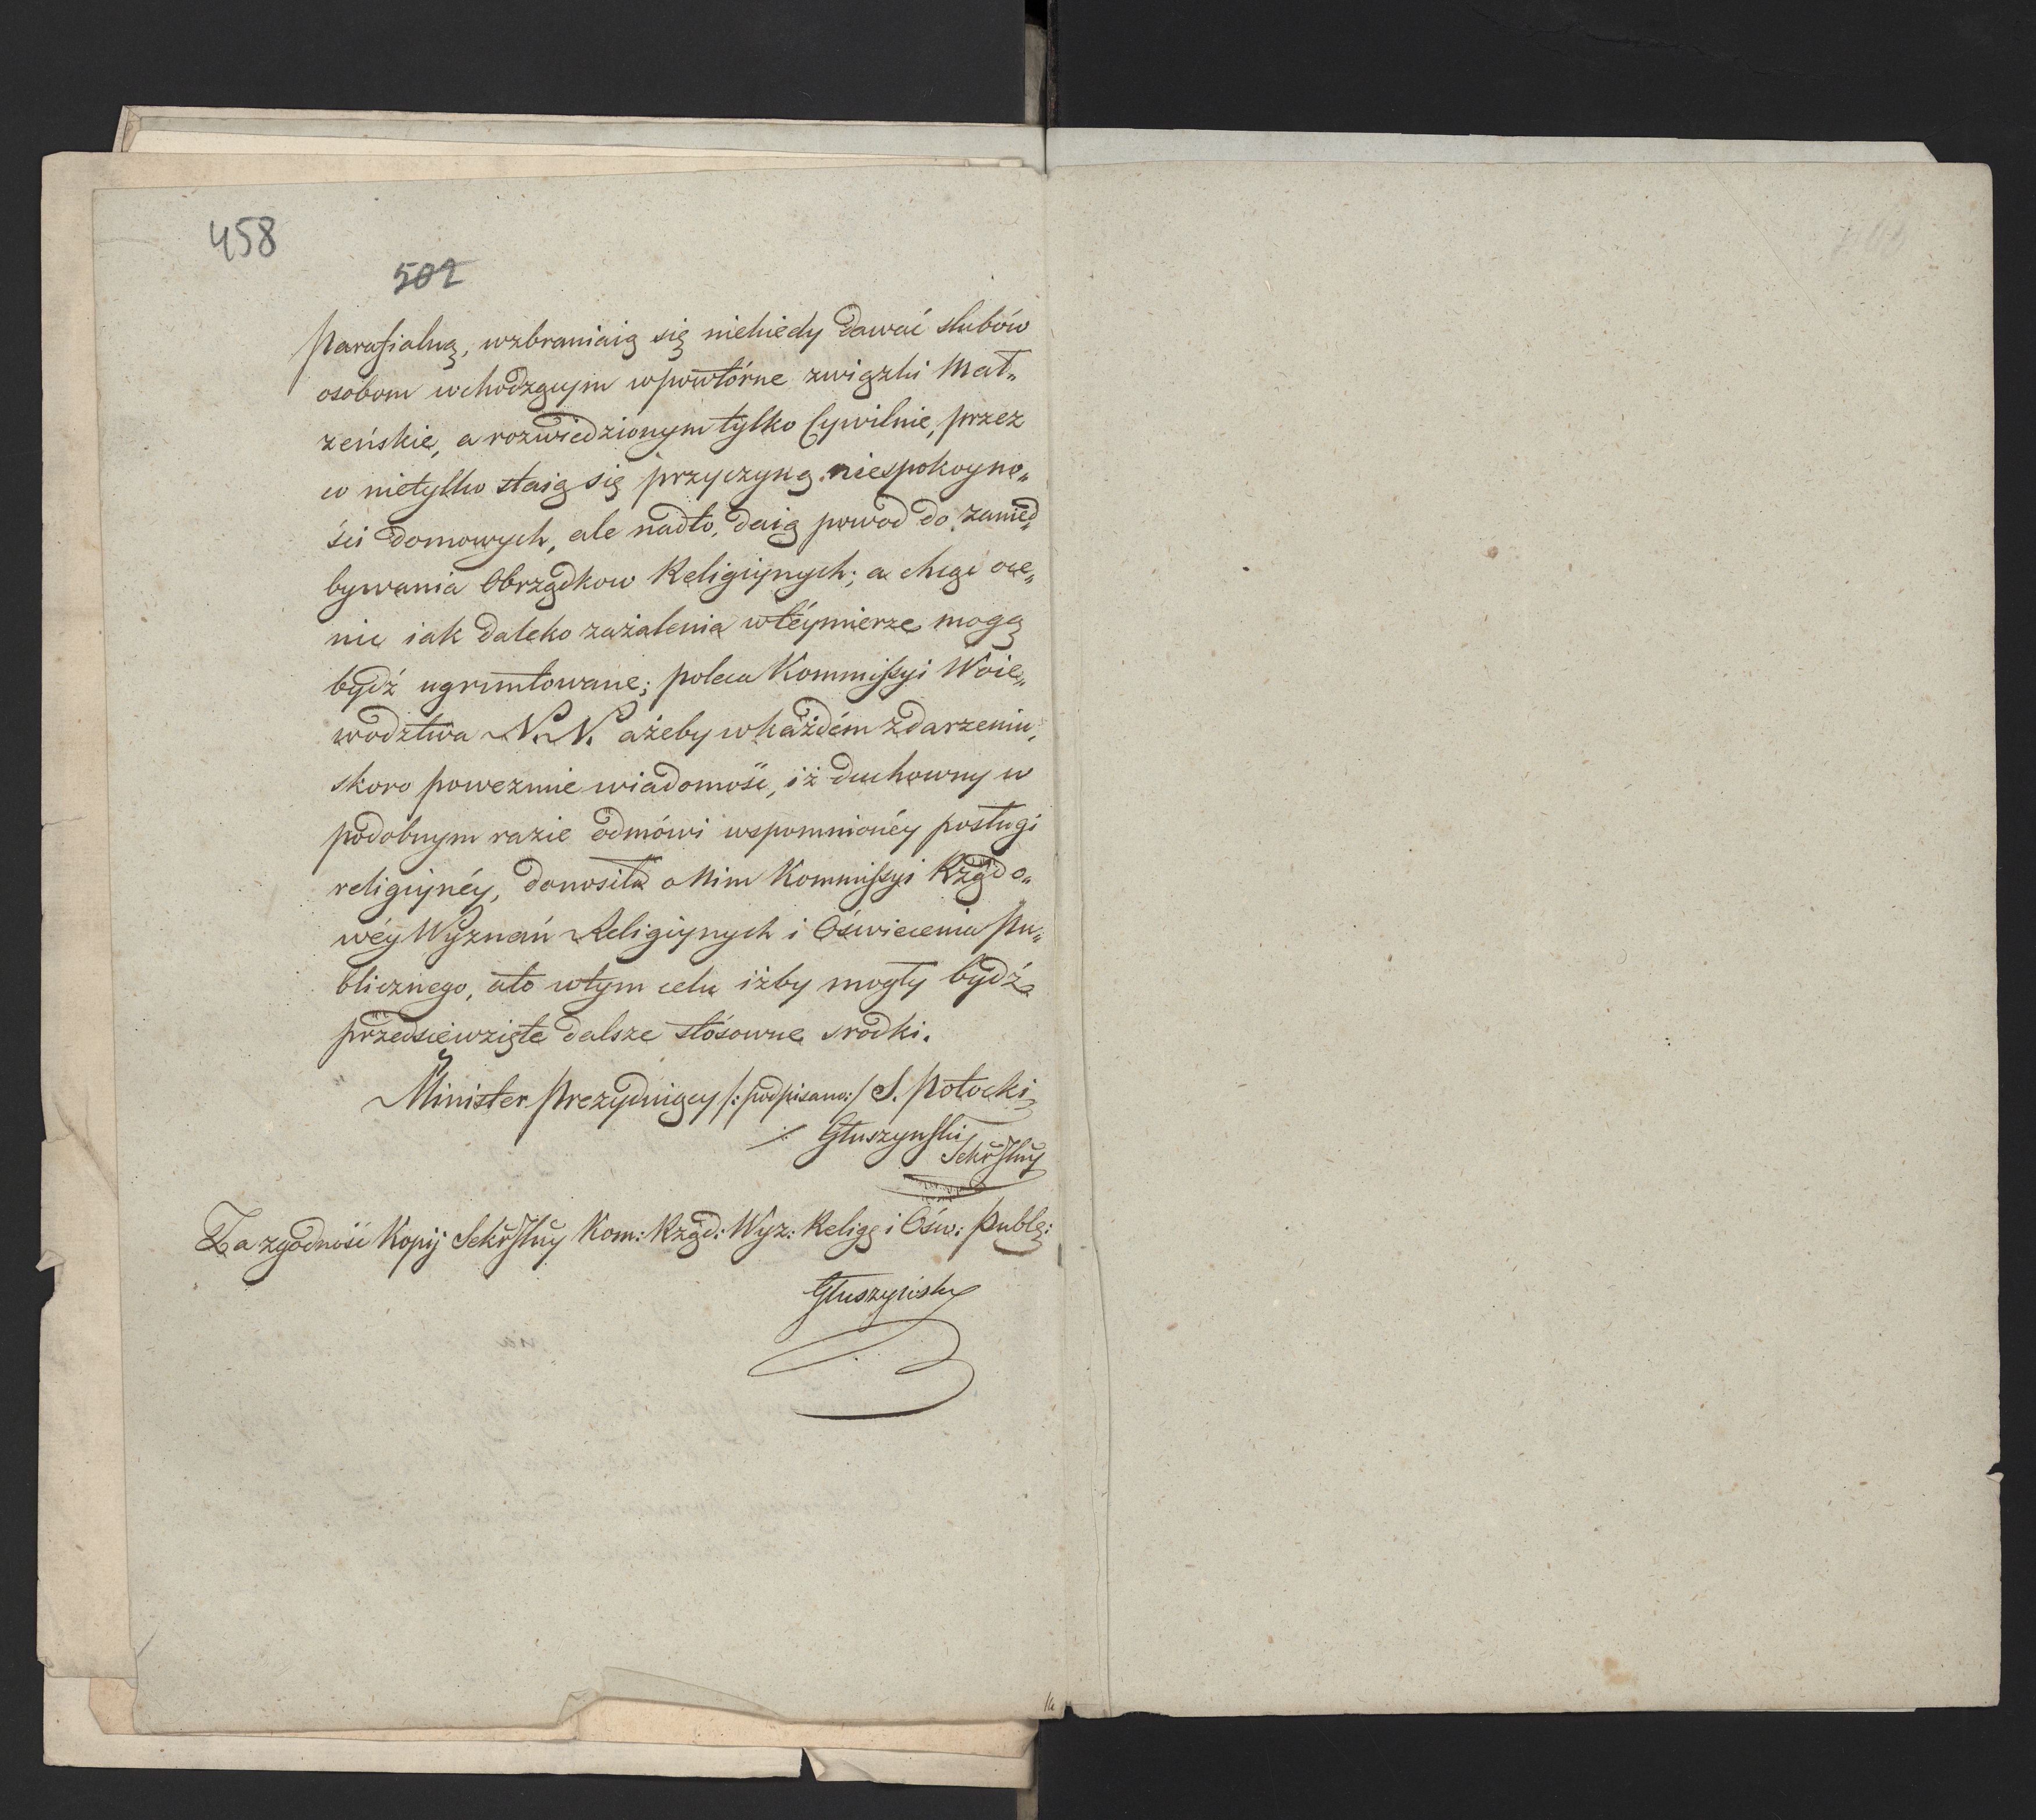 458
502
Parafialną, wzbraniaią się niekiedy dawać slubów
osobom wchodzącym w powtórne związki Mał„
żeńskie, a rozwiedzionym tylko Cywilnie, przez
co nietylko staią się przyczyną niespokoyno„
ści domowych, ale nadto, daią powod do zanied„
bywania Obrządkow Religiynych; a chcąc oce„
nić iak daleko zażalenia w téymierze mogą
bydź ugruntowane; poleca Kommissyi Woie„
wodztwa N. N. ażeby w każdém zdarzeniu,
skoro powezmie wiadomość, iż duchowny w
podobnym razie odmówi wspomnionéy posługi
religiynéy, donosiła o Nim Kommissyi Rządo„
wéy Wyznań Religiynych i Oświecenia Pu„
blicznego, a to w tym celu iżby mogły bydź
przedsiewzięte dalsze stósowne srodki.
Minister Prezyduiący /:podpisano:/ S. Potocki
Głuszyński
Sekr Jlny
Za zgodność Kopij Sekr Jlny Kom: Rząd: Wyz: Relig: i Ośw: Publ:
Głuszyński